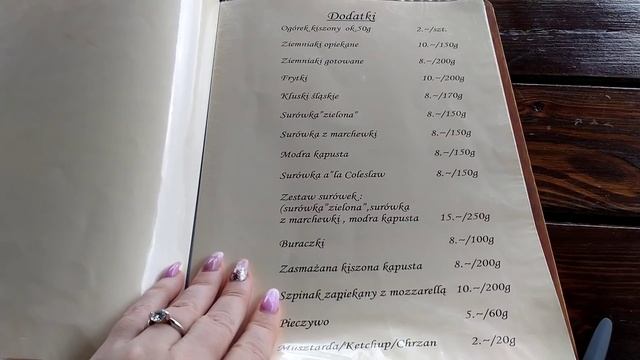 Dodatki
Ogórek kiszony ok.50g 2.~/szt.
Ziemniaki opiekane 10.~/150g
Ziemniaki gotowane 8.~/200g
Frytki 10.~/200g
Kluski śląskie 8.~/170g
Surówka"zielona" 8.~/150g
Surówka z marchewki 8.~/150g
Modra kapusta 8.~/150g
Surówka a"la Colesław 8.~/150g
Zestaw surówek :
(surówka"zielona",surówka
z marchewki , modra kapusta 15.~/250g
Buraczki 8.~/100g
Zasmażana kiszona kapusta 8.~/200g
Szpinak zapiekany z mozzarellą 10.~/200g
Pieczywo 5.~/60g
Musztarda/Ketchup/Chrzan 2.~/20g